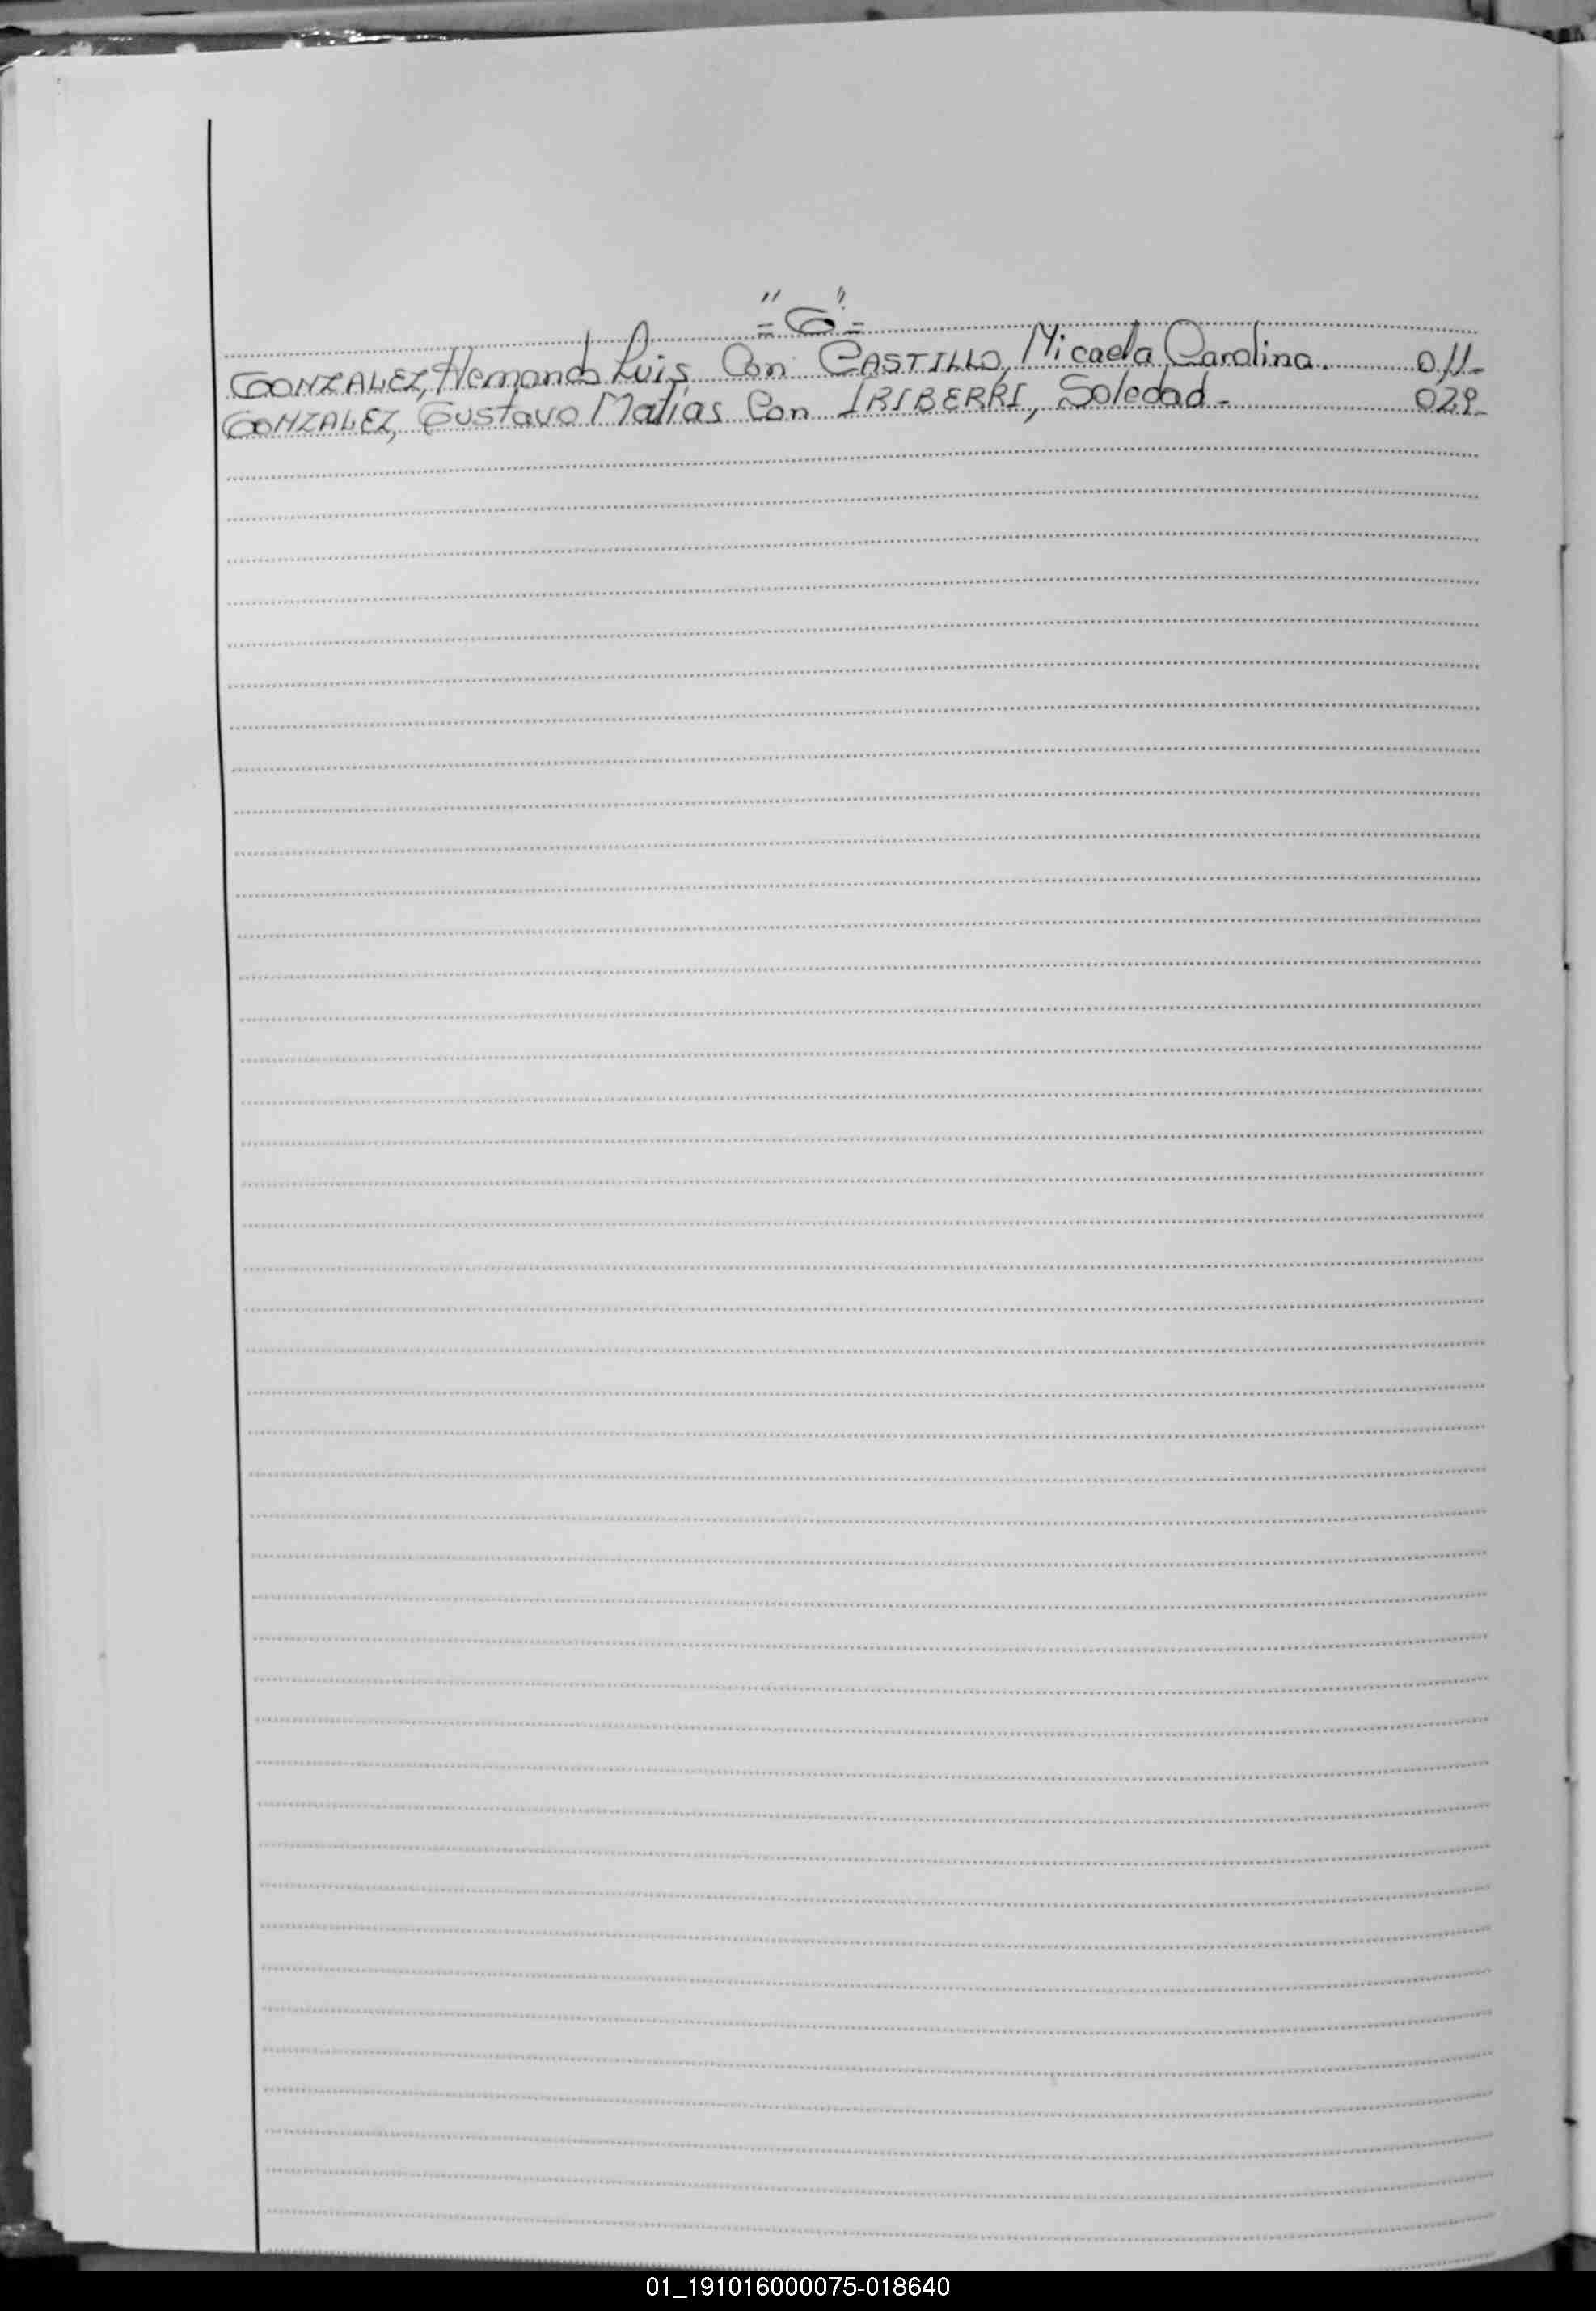 "G"
=
=
GONZALEZ, Hernando Luis Con CASTILLO, Micaela Carolina. 011-
GONZALEZ, Gustavo Matías Con IRIBERRI, Soledad - 029-
01_191016000075-018640